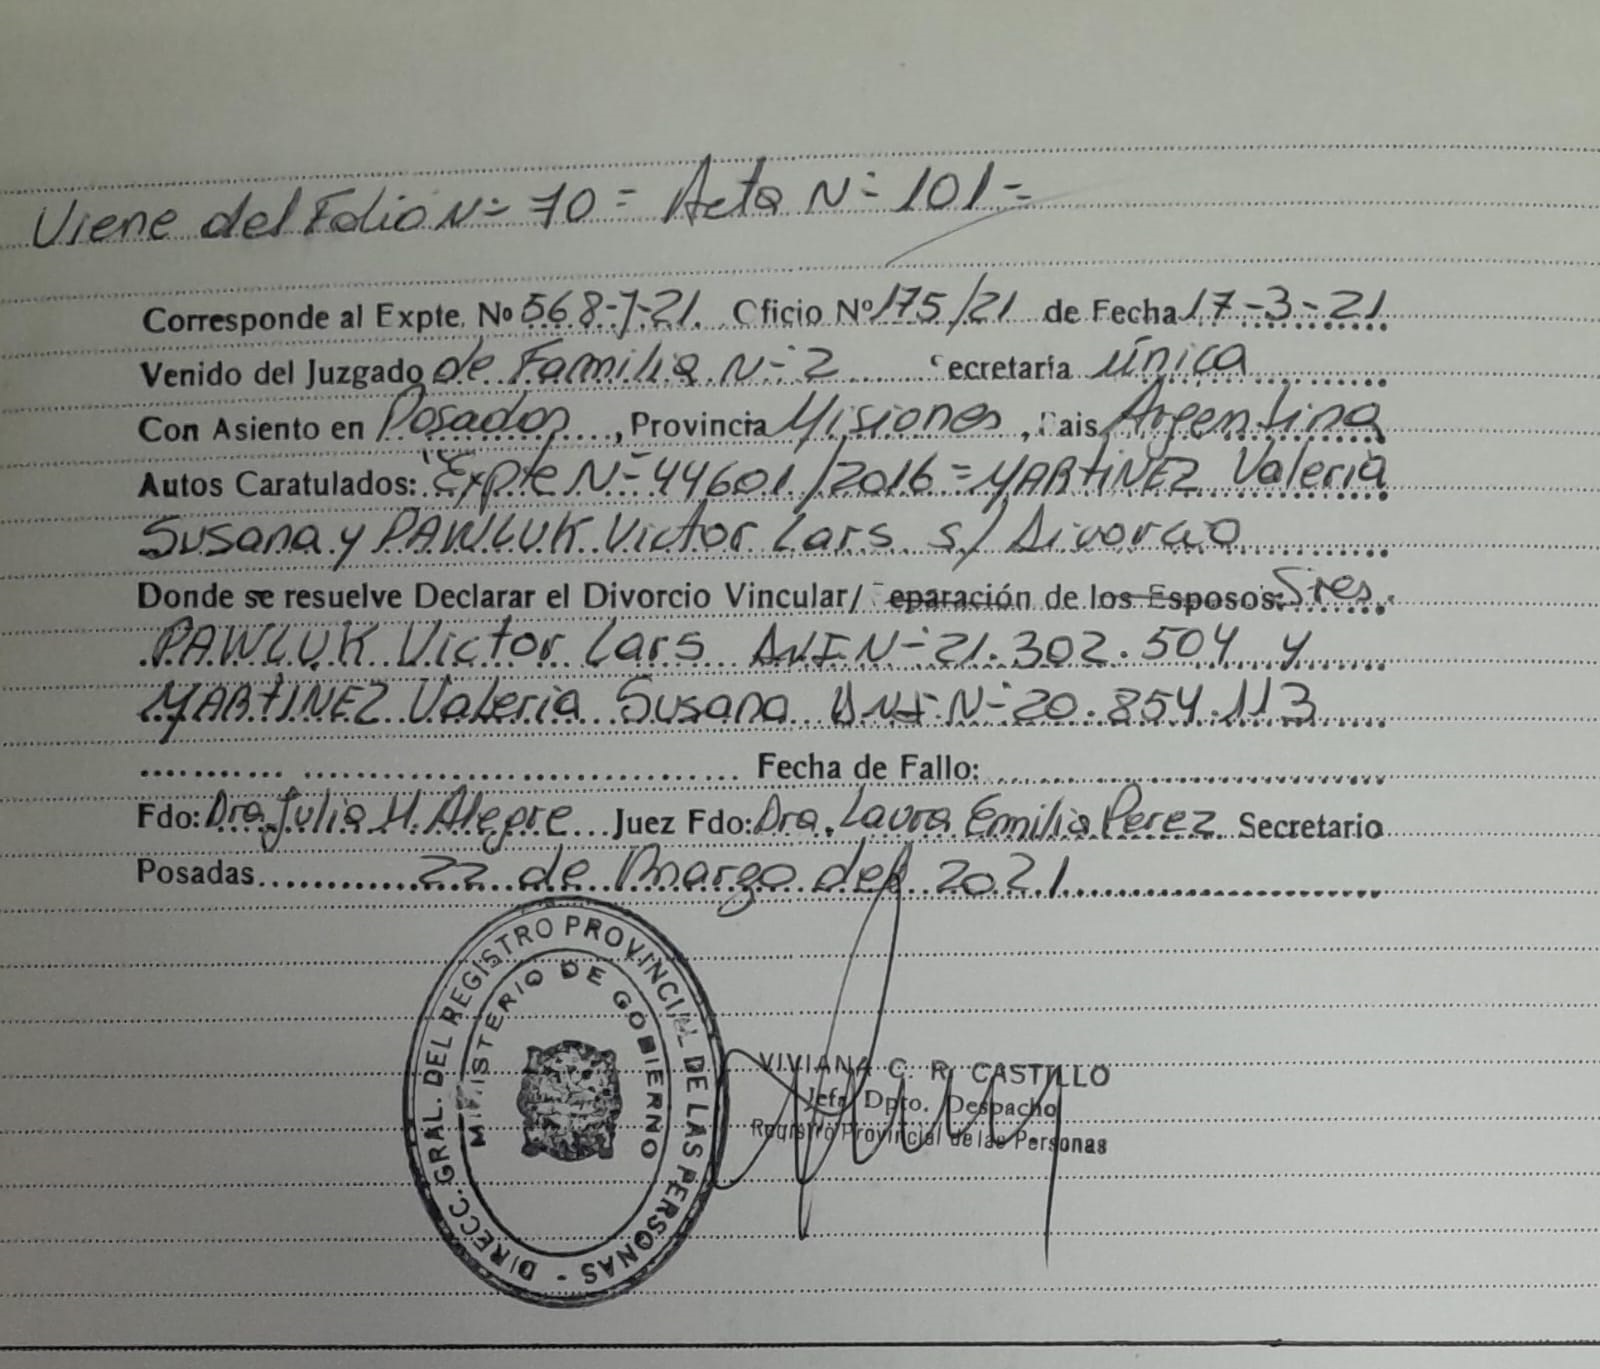 Viene del Folio N= 70 = Acta N= 101 =
Corresponde al Expte. Nº 568-J-21. Oficio Nº 175/21 de Fecha 17-3-21
Venido del Juzgado de Familia N= 2 Secretaría única
Con Asiento en Posadas, Provincia Misiones, Pais Argentina
Autos Caratulados: "Expte N= 44601/2016 = MARTINEZ Valeria
Susana y PAWLUK Victor Lars s/ Divorcio
Donde se resuelve Declarar el Divorcio Vincular/ Separación de los Esposos: Sres.
PAWLUK Victor Lars DNI N= 21.302.504 y
MARTINEZ Valeria Susana DNI N= 20.854.113
Fecha de Fallo:
Fdo: Dra. Julia H. Alegre Juez Fdo: Dra. Laura Emilia Perez Secretario
Posadas 22 de Marzo del 2021
DIRECC. GRAL. DEL REGISTRO PROVINCIAL DE LAS PERSONAS -
MINISTERIO DE GOBIERNO
VIVIANA C. R. CASTILLO
Jefa Dpto. Despacho
Registro Provincial de las Personas